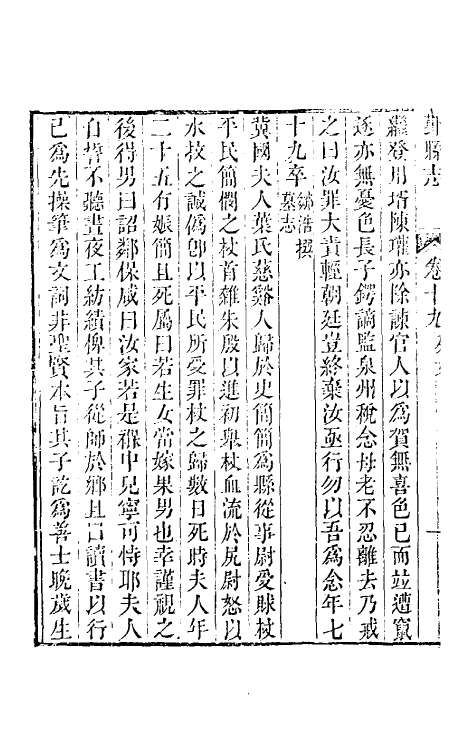 鄞縣志 卷十九
繼登用壻陳瓘亦除諫官人以爲賀無喜色已而竝遭竄
逐亦無憂色長子鍔謫監泉州稅念母老不忍離去乃戒
之曰汝罪大責輕朝廷豈終棄汝亟行勿以吾爲念年七
十九卒 鄒浩撰墓志
冀國夫人葉氏慈谿人歸於史簡簡爲縣從事尉愛賕杖
平民簡憫之杖首雜朱殷以進初舉杖血流於尻尉怒以
水挍之誠僞卽以平民所受罪杖之歸數日死時夫人年
二十五有娠簡且死屬曰若生女當嫁果男也幸謹視之
後得男曰詔鄰保咸曰汝家若是襁中兒寧可恃耶夫人
自誓不聽晝夜工紡績俾其子從師於鄉且曰讀書以行
已爲先操筆爲文詞非聖賢本旨其子訖爲善士晚歲生